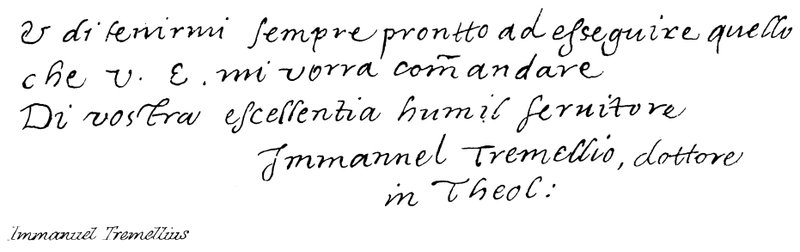 & di tenirmi sempre prontto ad esseguire quello
che v. E. mi vorra com̃andare
Di vostra escellentia humil seruitore
Immannel Tremellio, dottore
in Theol:
Immanuel Tremellius